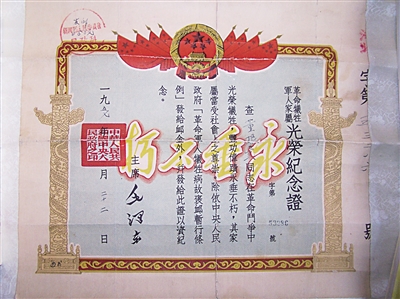 革命犧牲
軍人家屬
光榮紀念證
字第
號
查
同志在革命鬥爭中
光榮犧牲,豐功偉績永垂不朽,其家
屬當受社會上之尊崇。除依中央人民
政府「革命軍人犧牲病故褒卹暫行條
例」發給卹金外,並發給此證以資紀
念。
主席 毛澤東
一九
月
日
永垂不朽
字第
號